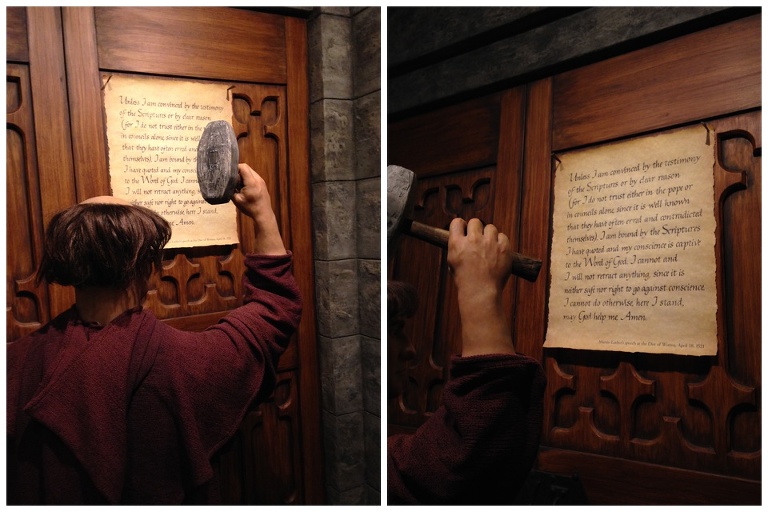 Unless I am convinced by the testimony
of the Scriptures or by clear reason
(for I do not trust either in the
in councils alone, since it is well
that they have often erred
themselves), I am bound by the
I have quoted and my
to the Word of God. I cannot
I will not retract anything,
safe nor right to go against
otherwise, here I stand,
Amen.
Unless I am convinced by the testimony
of the Scriptures or by clear reason
(for I do not trust either in the pope or
in councils alone, since it is well known
that they have often erred and contradicted
themselves), I am bound by the Scriptures
I have quoted and my conscience is captive
to the Word of God. I cannot and
I will not retract anything, since it is
neither safe nor right to go against conscience
I cannot do otherwise, here I stand,
may God help me. Amen.
Martin Luther's speech at the Diet of Worms, April 18, 1521